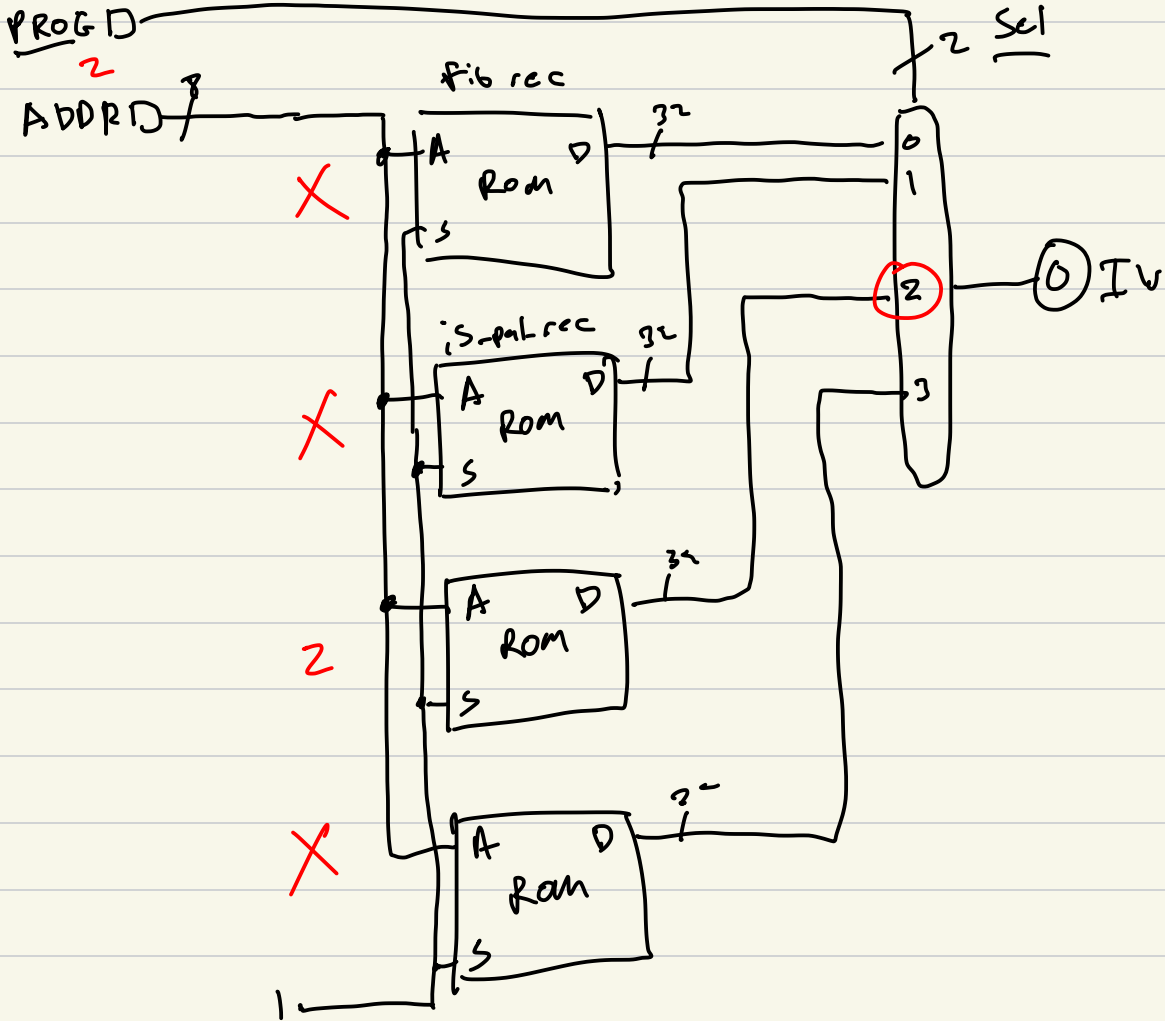 PROG
2
2 Sel
ADDR
8
fib rec
A D
ROM
S
32
0
1
2
3
O IW
X
is_pal_rec
A D
ROM
S
32
X
A D
ROM
S
32
2
A D
ROM
S
X
1